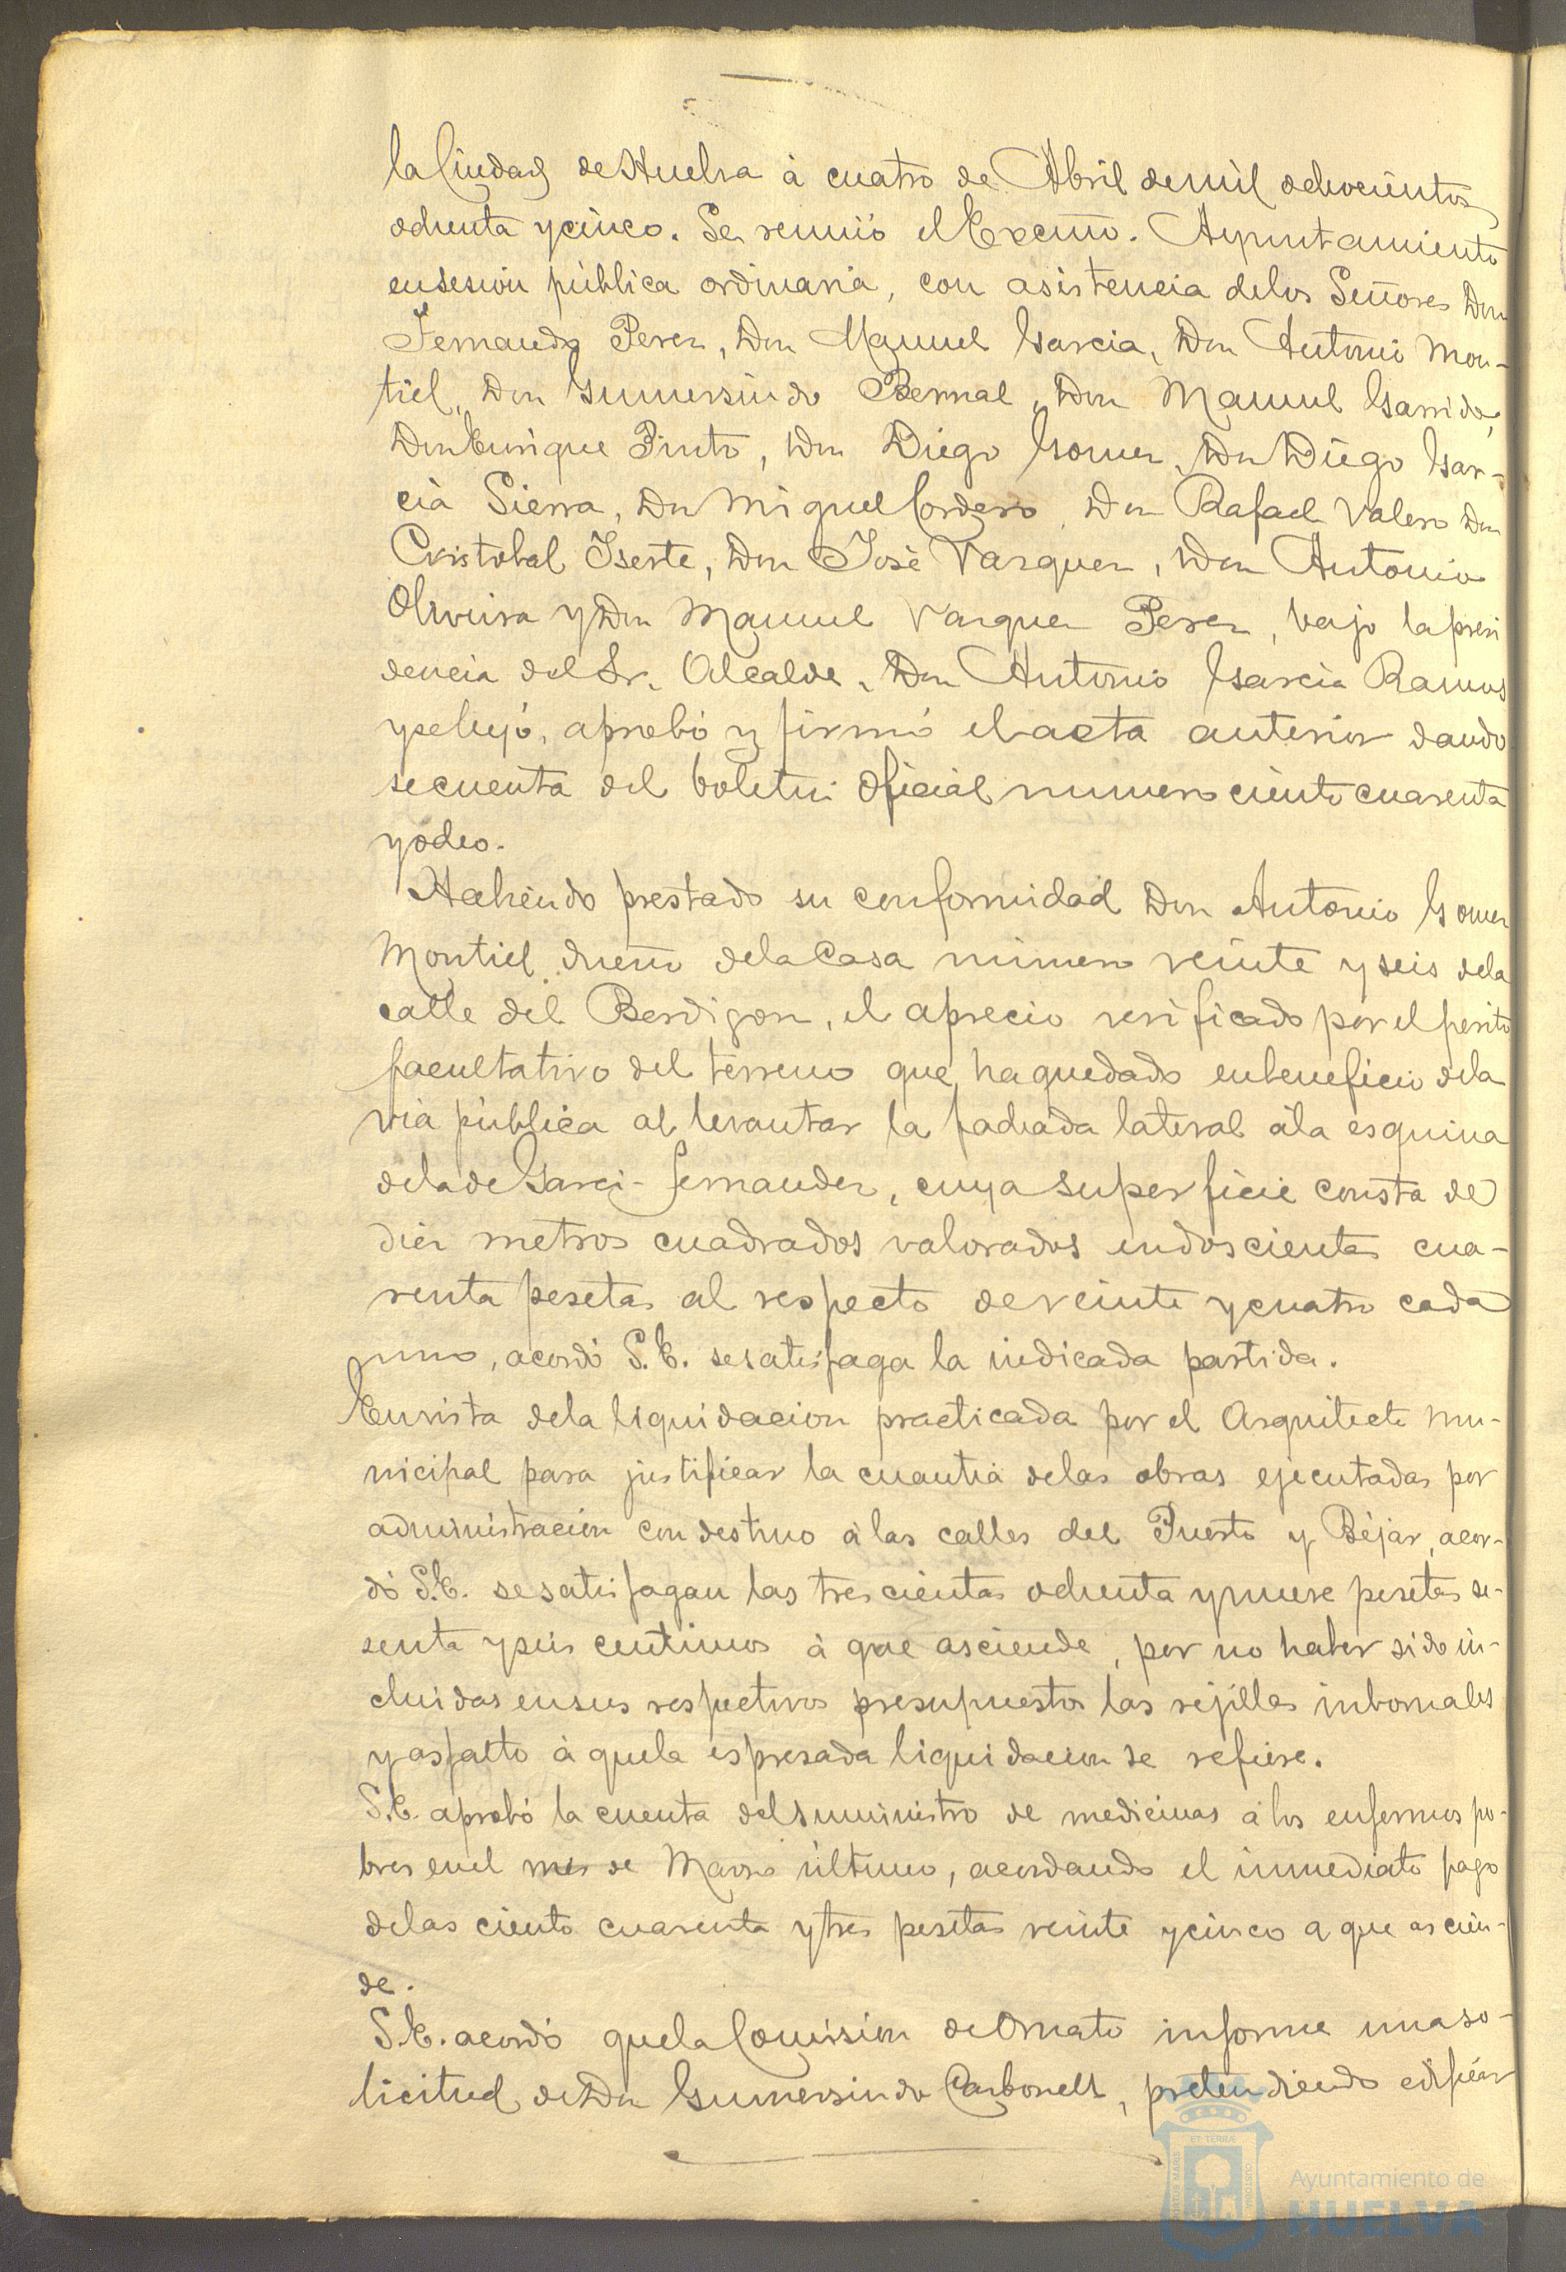 la Ciudad de Huelva à cuatro de Abril de mil ochocientos
ochenta y cinco. Se reunió el Excmo. Ayuntamiento
en sesion pública ordinaria, con asistencia de los Señores Don
Fernando Perez, Don Manuel Garcia, Don Antonio Mon-
tiel, Don Gumersindo Bernal, Don Manuel Garrido,
Don Enrique Pinto, Don Diego Gomez, Don Diego Gar-
cia Sierra, Don Miguel Cordero, Don Rafael Valero Don
Cristobal Iserte, Don José Vazquez, Don Antonio
Oliveira y Don Manuel Vazquez Perez, bajo la presi
dencia del Sr. Alcalde, Don Antonio Garcia Ramos
y se leyó, aprobó y firmó el acta anterior dando
se cuenta del boletin oficial numero ciento cuarenta
y ocho.
Habiendo prestado su conformidad Don Antonio Gomez
Montiel dueño de la Casa número veinte y seis de la
calle del Berdigon, el aprecio verificado por el perito
facultativo del terreno que ha quedado en beneficio de la
via pública al levantar la fachada lateral á la esquina
de la de Garci-Fernandez, cuya superficie consta de
diez metros cuadrados valorados en doscientas cua-
renta pesetas al respecto de veinte y cuatro cada
uno, acordó S.E. se satisfaga la indicada partida.
En vista de la liquidacion practicada por el Arquitecto mu-
nicipal para justificar la cuantia de las obras ejecutadas por
administracion con destino à las calles del Puerto y Béjar, acor-
dó S.E. se satisfagan las trescientas ochenta y nueve pesetas se-
senta y seis centimos à que asciende, por no haber sido in-
cluidas en sus respectivos presupuestos las rejillas imbornales
y asfalto à que la espresada liquidacion se refiere.
S.E. aprobó la cuenta del suministro de medicinas à los enfermos po-
bres en el mes de Marzo último, acordando el inmediato pago
de las ciento cuarenta y tres pesetas veinte y cinco a que ascien-
de.
S.E. acordó que la Comision de Ornato informe una so-
licitud de Don Gumersindo Carbonell, pretendiendo edificar
ET TERRAE
Ayuntamiento de
HUELVA